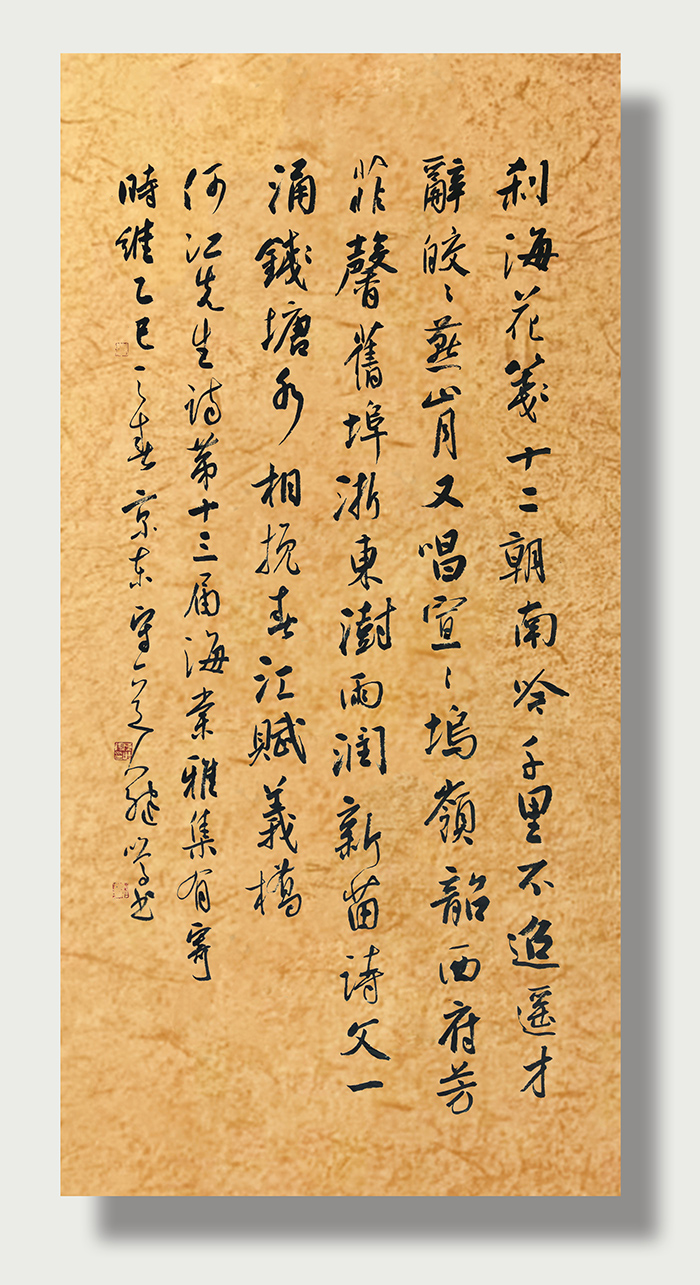 刹海花箋十二朝南吟千里不迢遥才
辭皎〻燕山月又唱宣〻塢嶺韶西府芳
菲馨舊埠浙東澍雨潤新苗詩父一
涌錢塘水相挽春江賦義橋
何江先生詩第十三屆海棠雅集有寄
時維乙巳之春京東守道人継嵩书